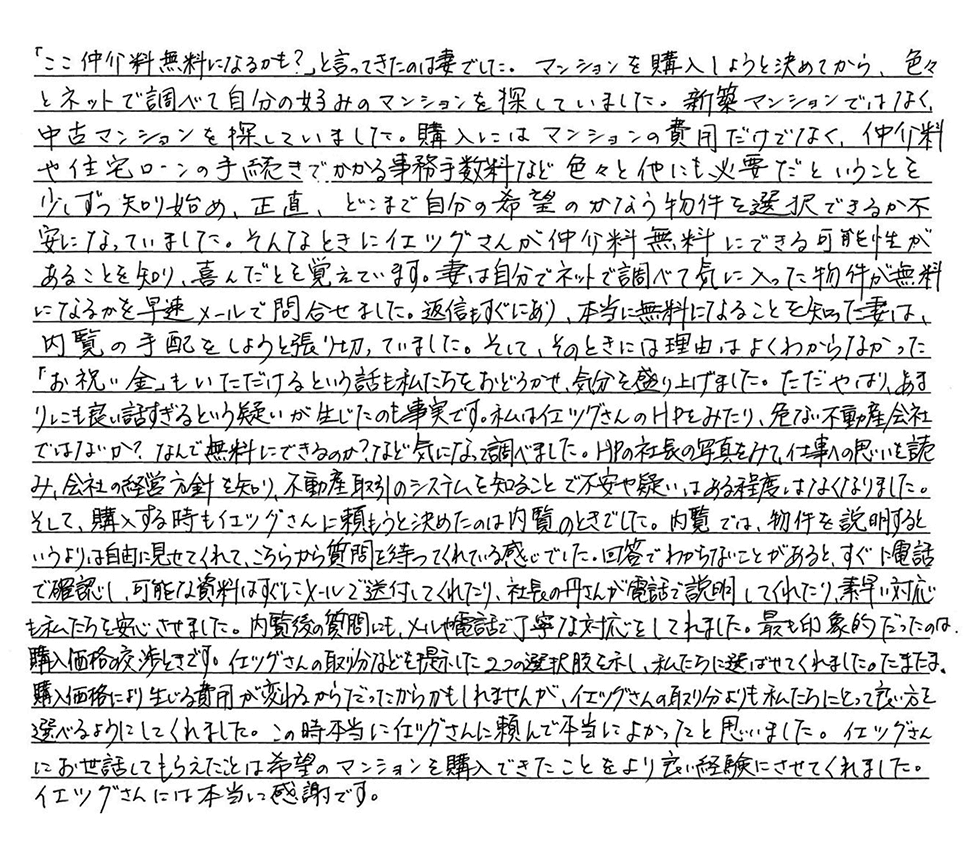 「ここ仲介料無料になるかも?」と言ってきたのは妻でした。マンションを購入しようと決めてから、色々
とネットで調べて自分の好みのマンションを探していました。新築マンションではなく、
中古マンションを探していました。購入にはマンションの費用だけでなく、仲介料
や住宅ローンの手続きでかかる事務手数料など色々と他にも必要だということを
少しずつ知り始め、正直、どこまで自分の希望のかなう物件を選択できるか不
安になっていました。そんなときにイエッグさんが仲介料無料にできる可能性が
あることを知り、喜んだことを覚えています。妻は自分でネットで調べて気に入った物件が無料
になるかを早速メールで問合せました。返信もすぐにあり、本当に無料になることを知った妻は、
内覧の手配をしようと張り切っていました。そして、そのときには理由はよくわからなかった
「お祝い金」もいただけるという話も私たちをおどろかせ、気分を盛り上げました。ただやはり、あま
りにも良い話すぎるという疑いが生じたのも事実です。私はイエッグさんのHPをみたり、危ない不動産会社
ではないか?なんで無料にできるのか?など気になって調べました。HPの社長の写真をみて、仕事への思いを読
み、会社の経営方針を知り、不動産取引のシステムを知ることで不安や疑いはある程度はなくなりました。
そして、購入する時もイエッグさんに頼もうと決めたのは内覧のときでした。内覧では、物件を説明すると
いうよりは自由に見せてくれて、こちらから質問を待ってくれている感じでした。回答でわからないことがあると、すぐに電話
で確認し、可能な資料はすぐにメールで送付してくれたり、社長の円さんが電話で説明してくれたり、素早い対応
も私たちを安心させました。内覧後の質問にも、メールや電話で丁寧な対応をしてれました。最も印象的だったのは、
購入価格の交渉ときです。イエッグさんの取り分などを提示した2つの選択肢を示し、私たちに選ばせてくれました。たまたま、
購入価格により生じる費用が変わるからだったからかもしれませんが、イエッグさんの取り分よりも私たちにとって良い方を
選べるようにしてくれました。この時本当にイエッグさんに頼んで本当によかったと思いました。イエッグさん
にお世話してもらえたことは希望のマンションを購入できたことをより良い経験にさせてくれました。
イエッグさんには本当に感謝です。